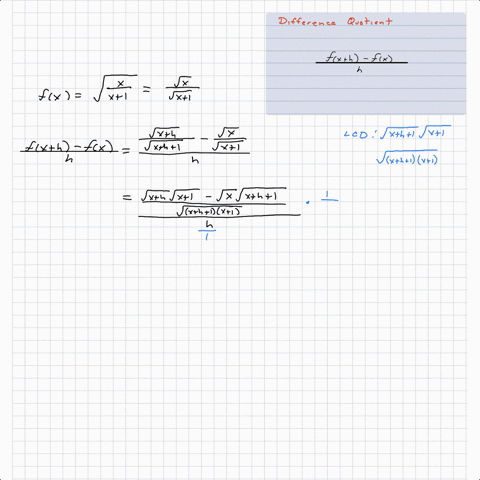 Difference Quotient
f(x+h) - f(x) / h
f(x) = √(x/(x+1)) = √x/√(x+1)
LCD: √(x+h+1) √(x+1)
√((x+h+1)(x+1))
(f(x+h) - f(x))/h = (√(x+h)/√(x+h+1) - √x/√(x+1))/h
= ((√(x+h) √(x+1) - √x √(x+h+1))/√((x+h+1)(x+1)))/(h/1) · 1/